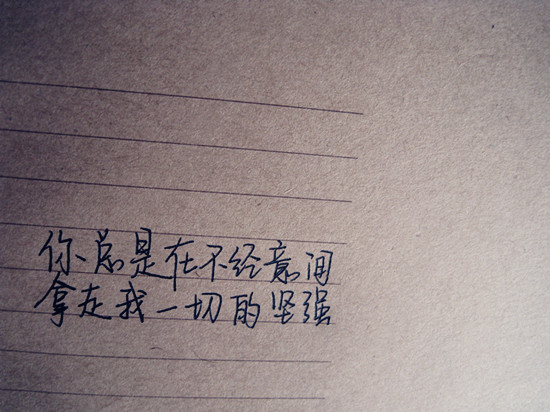 你总是在不经意间
拿走我一切的坚强